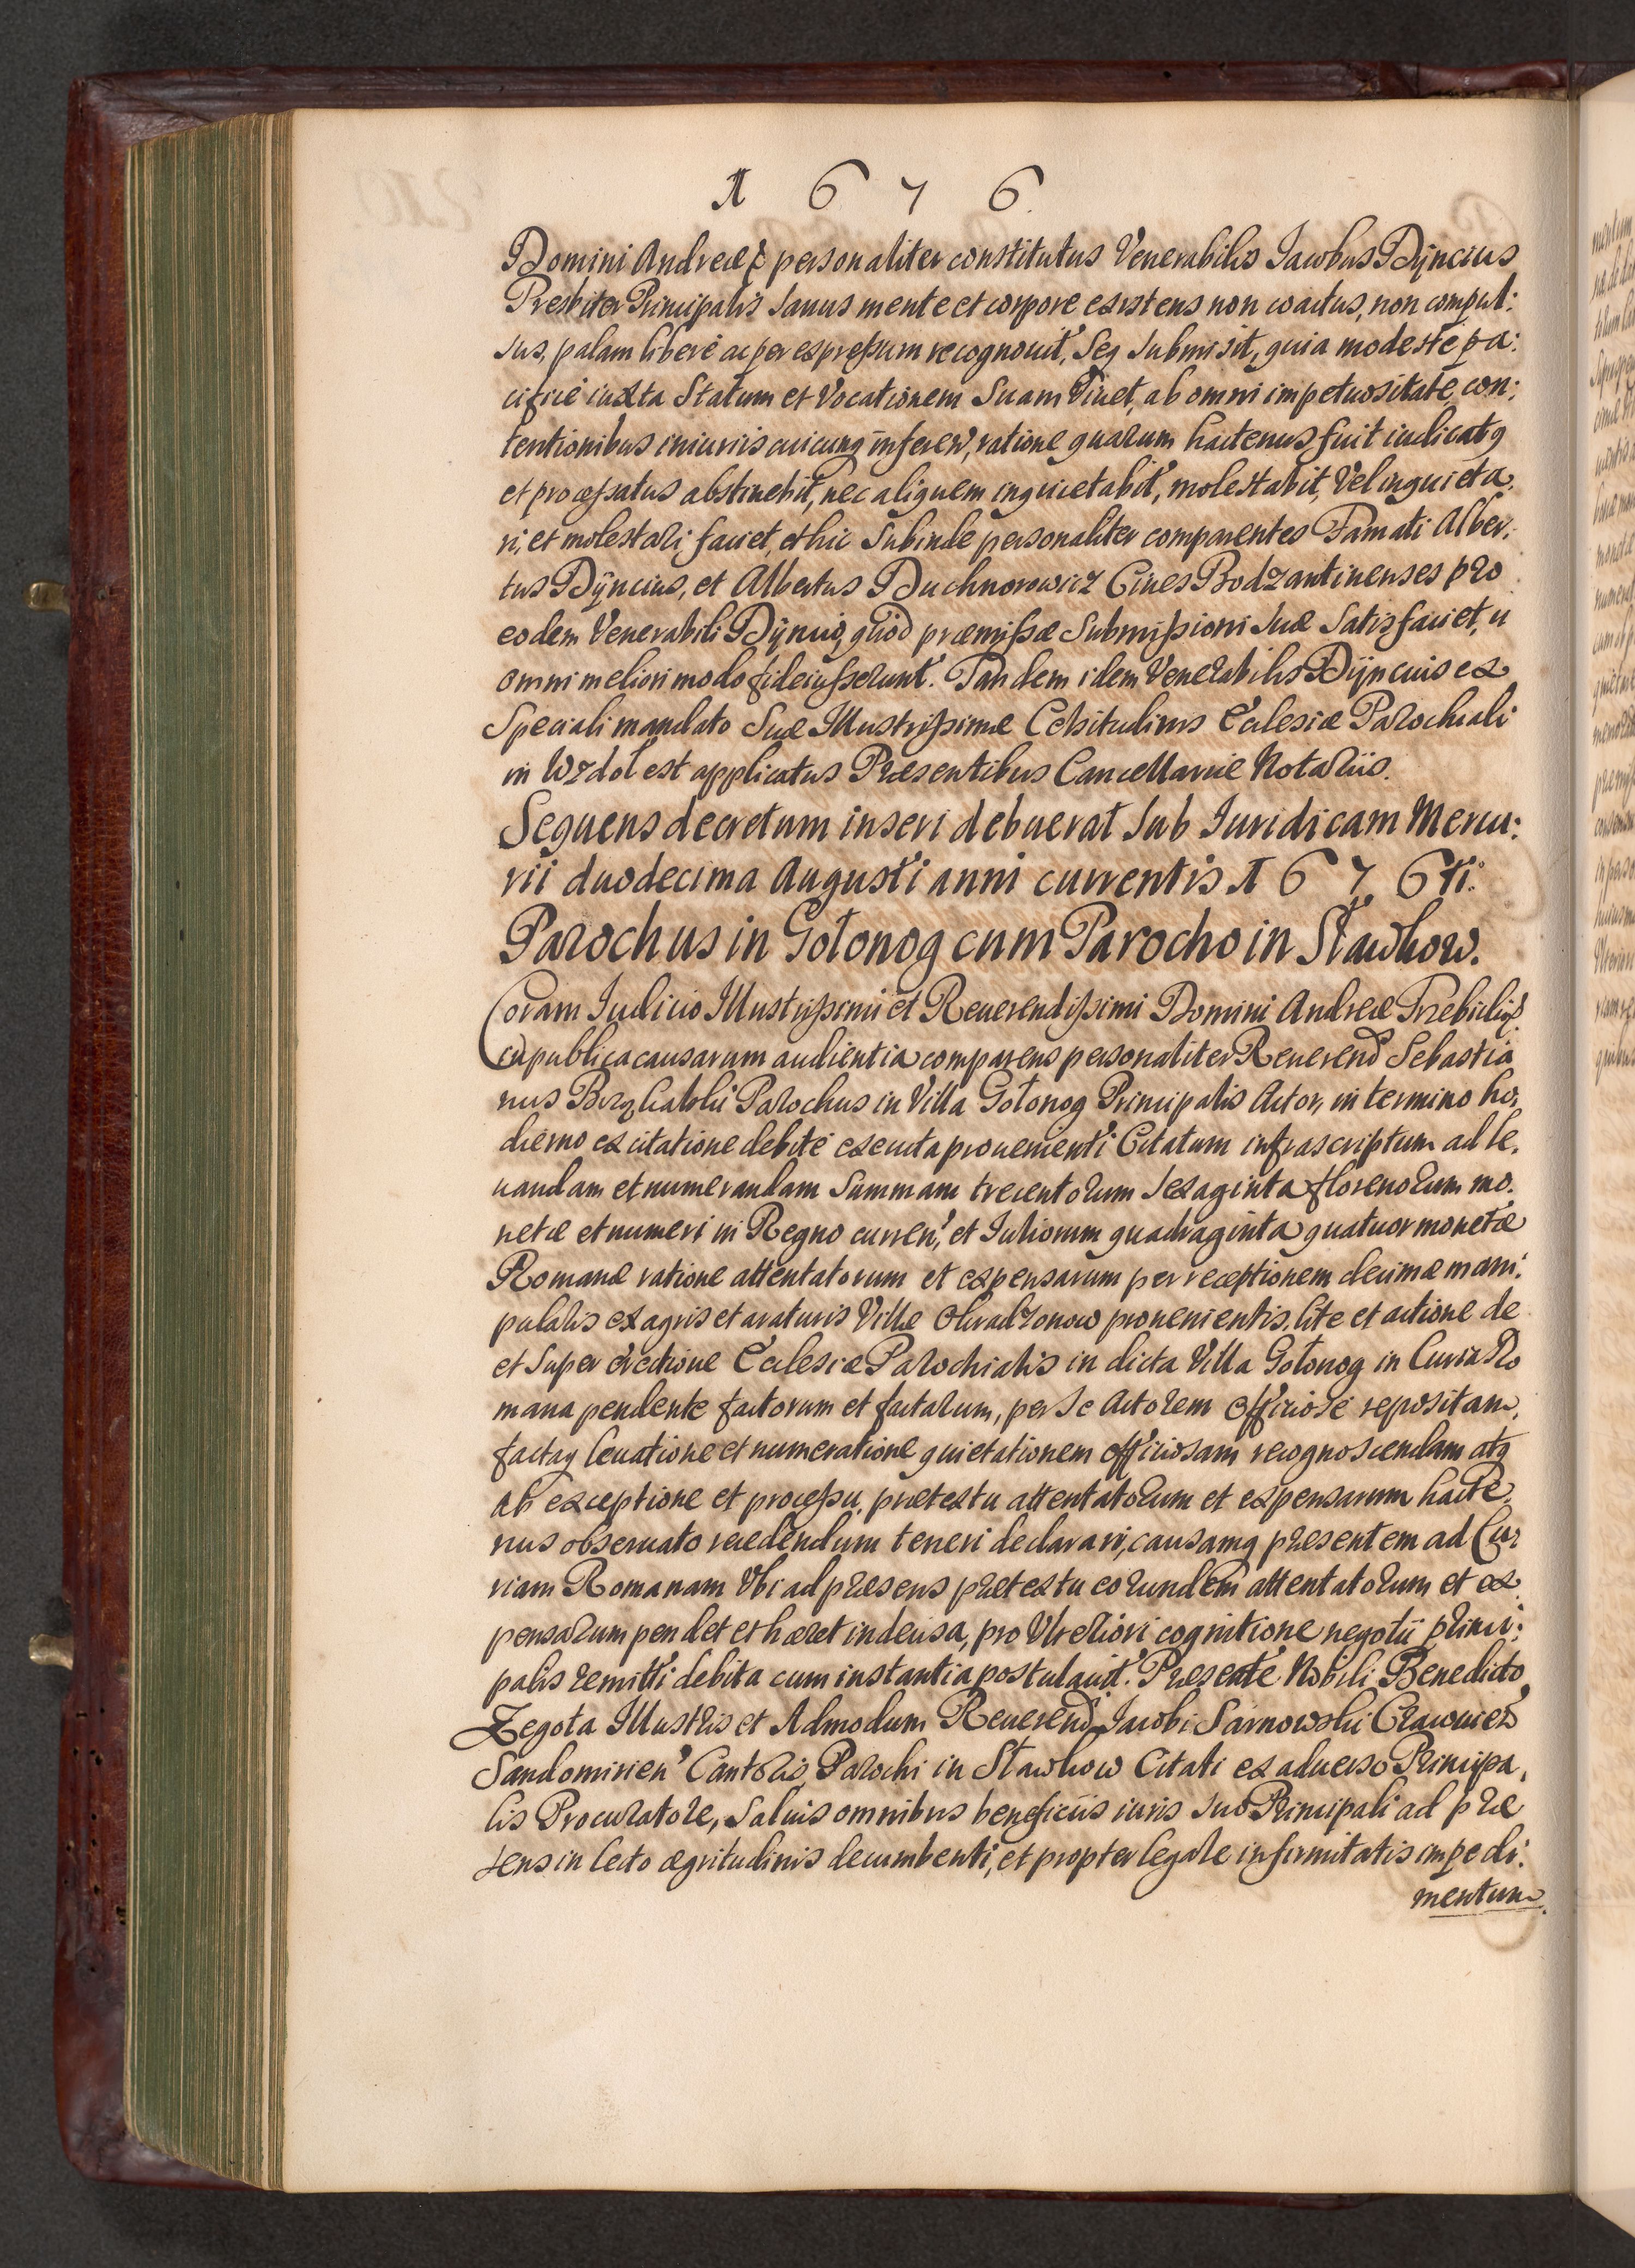 1 6 7 6
Domini Andreæ & personaliter constitutus Venerabilis Iacobus Dÿncius
Presbiter Principalis Sanus mente et corpore existens non coactus, non compul:
sus, palam liberè ac per expreſsum recognouit, Seq Submisit, quia modestè pa:
cificè iuxta Statum et Vocationem Suam Viuet, ab omni impetuositate, con:
tentionibus iniurijs cuicunq inferen, ratione quarum hactenus fuit iudicatq
et proceſsatus abstinebit, nec aliquem inquietabit, molestabit, Vel inquieta.
ri, et molestari faciet, et hic Subinde personaliter comparentes Famati Alber.
tus Dÿncius, et Albertus Duchnorowicz Ciues Bodzantinenses pro
eodem Venerabili Dÿncio, quòd præmiſsæ Submiſsioni Suæ Satisfaciet,
omni meliori modo fideiuſserunt. Tandem idem Venerabilis Dÿncius ex
Speciali mandato Suæ Illustriſsimæ Celsitudinis Ecclesiæ Parochiali
in Wzdol est applicatus Præsentibus Cancellariæ Notariis.
Sequens decretum inseri debuerat Sub Iuridicam Mercu:
rii duodecima Augusti anni currentis 1 6 7 6ti.
Parochus in Gołonog cum Parocho in Sławkow.
Coram Iudicio Illustriſsimi et Reuerendiſsimi Domini Andreæ Trzebicki &
in publica causarum audientia comparens personaliter Reuerend Sebastia
nus Parochus in Villa Gołonog Principalis Actor, in termino ho,
dierno ex citatione debitè executa proueniẽti Citatum infrascriptum ad le,
uandam et numerandam Summam trecentorum Sexaginta florenorum mo.
netæ et numeri in Regno curren, et Iuliorum quadraginta quatuor monetæ
Romanæ ratione attentatorum et expensarum per receptionem decimæ mani:
pulalis ex agris et araturis Villæ prouenientis, lite et actione de
et Super erectione Ecclesiæ Parochialis in dicta Villa Gołonog in Curia Ro
mana pendente factorum et factarum, per Se Actorem officiosè repositam,
factaq leuatione et numeratione quietationem officiosam recognoscendam atq
ab exceptione et proceſsu prætextu attentatorum et expensarum hacte,
nus obseruato recedendum teneri declarari, causamq præsentem ad Cu
riam Romanam Vbi ad præsens prætextu eorundem attentatorum et ex
pensarum pendet et hæret indecisa, pro Vlteriori cognitione negotii princi:
palis remitti debita cum instantia postulauit. Præsente Nobili Benedicto
Zegota Illustris et Admodum Reuerend Iacobi Sarnowski Cracouien
Sandomirien Cantoris Parochi in Sławkow Citati ex aduerso Principa,
lis Procuratore, Saluis omnibus beneficiis iuris Suo Principali ad præ
sens in lecto ægritudinis decumbenti, et propter legale infirmitatis impedi:
mentum